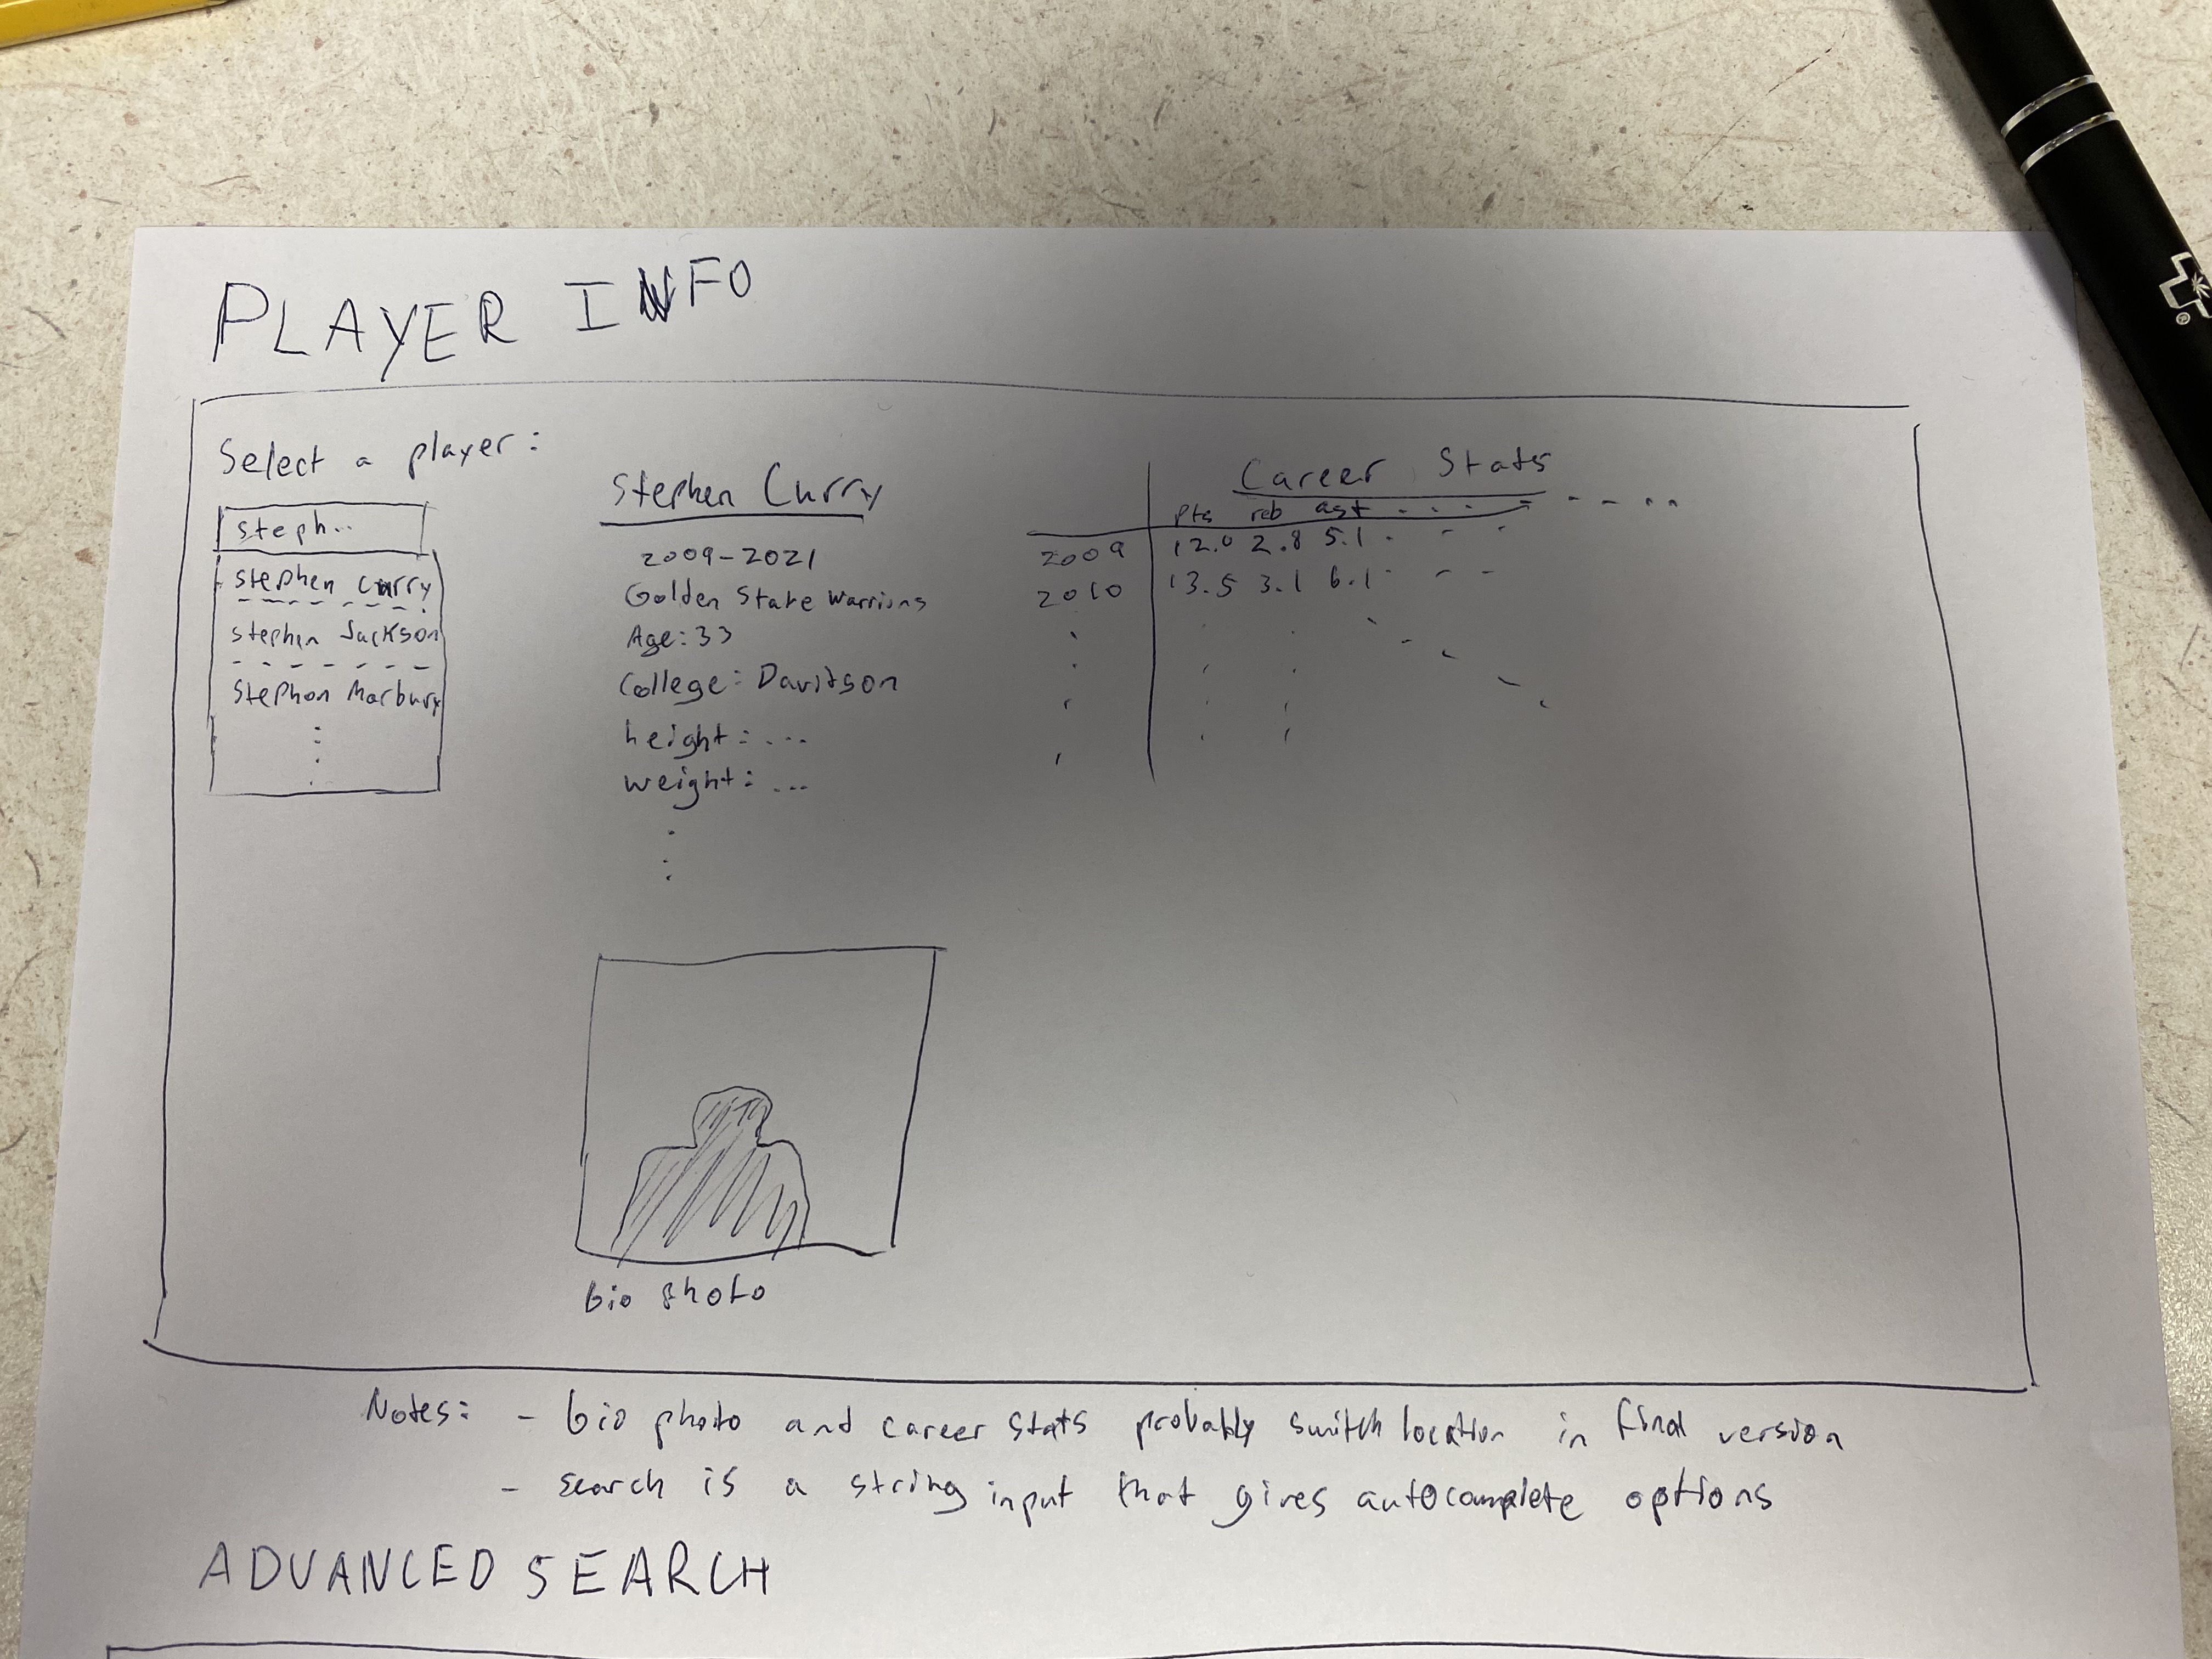 PLAYER INFO
Select a player:
steph...
stephen Curry
stephen Jackson
stephon Marbury
Stephen Curry
2009-2021
Golden State Warriors
Age: 33
College: Davitson
height: ...
weight: ...
bio photo
Career Stats
pts reb ast
2009 12.0 2.8 5.1
2010 13.5 3.1 6.1
Notes: - bio photo and career stats probably switch location in final version
- search is a string input that gives autocomplete options
ADVANCED SEARCH
®